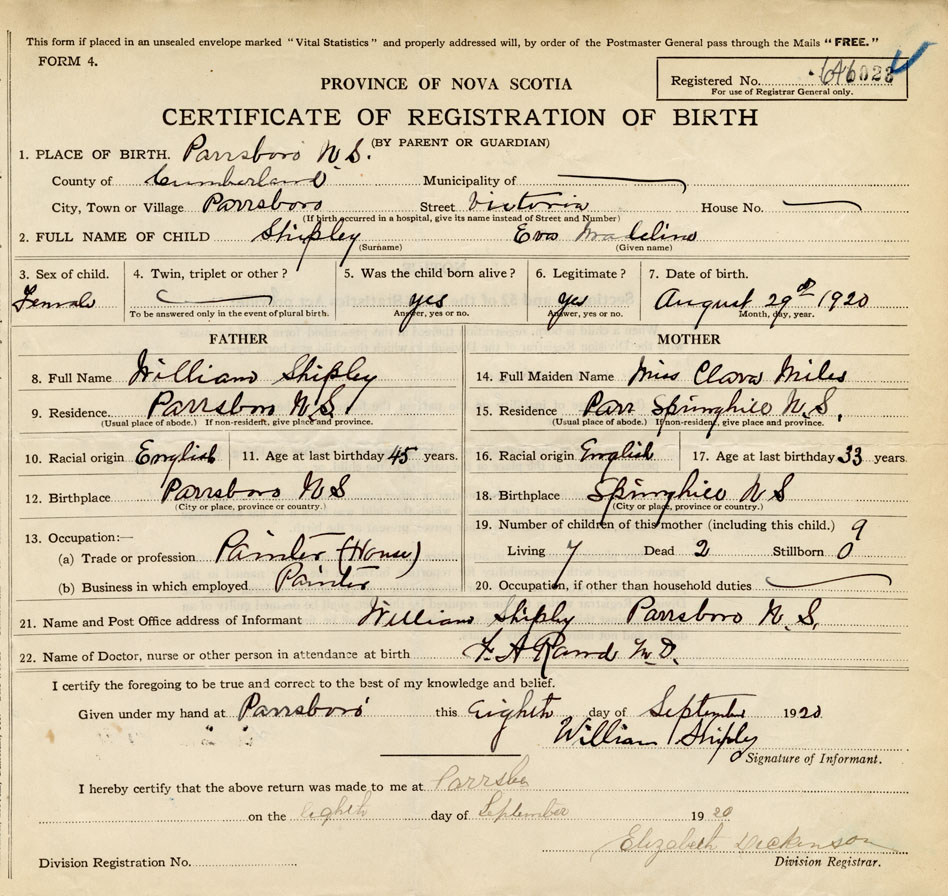 This form if placed in an unsealed envelope marked "Vital Statistics" and properly addressed will, by order of the Postmaster General pass through the Mails "FREE."
FORM 4.
Registered No.
For use of Registrar General only.
PROVINCE OF NOVA SCOTIA
CERTIFICATE OF REGISTRATION OF BIRTH
(BY PARENT OR GUARDIAN)
1. PLACE OF BIRTH. Parrsboro N.S.
County of Cumberland Municipality of
City, Town or Village Parrsboro Street Victoria House No.
(If birth occurred in a hospital, give its name instead of Street and Number)
2. FULL NAME OF CHILD Shipley Eva Madeline
(Surname) (Given name)
3. Sex of child. 4. Twin, triplet or other? 5. Was the child born alive? 6. Legitimate? 7. Date of birth.
Female yes yes August 29th 1920
To be answered only in the event of plural birth. Answer, yes or no. Answer, yes or no. Month, day, year.
FATHER
8. Full Name William Shipley
9. Residence. Parrsboro N.S.
(Usual place of abode.) If non-resident, give place and province.
10. Racial origin English 11. Age at last birthday 45 years.
12. Birthplace Parrsboro N S
(City or place, province or country.)
13. Occupation:—
(a) Trade or profession Painter (House)
(b) Business in which employed Painter
MOTHER
14. Full Maiden Name Miss Clara Miles
15. Residence Parr Springhill N.S.
(Usual place of abode.) If non-resident, give place and province.
16. Racial origin English 17. Age at last birthday 33 years.
18. Birthplace Springhill N S
(City or place, province or country.)
19. Number of children of this mother (including this child.) 9
Living 7 Dead 2 Stillborn 0
20. Occupation, if other than household duties
21. Name and Post Office address of Informant William Shiply Parrsboro N.S.
22. Name of Doctor, nurse or other person in attendance at birth F. A Rand M.D.
I certify the foregoing to be true and correct to the best of my knowledge and belief.
Given under my hand at Parrsboro this Eighth day of September 1920
William Shiply
Signature of Informant.
I hereby certify that the above return was made to me at Parrsbo
on the eighth day of September 1920
Elizabeth Dickinson
Division Registrar.
Division Registration No.